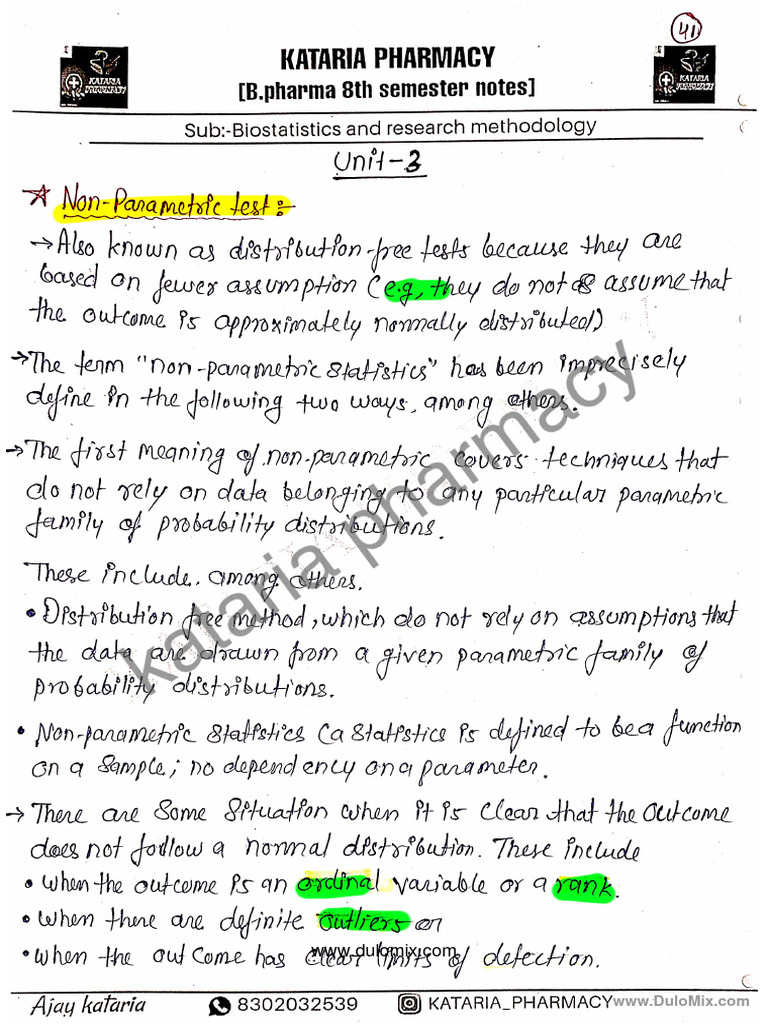 41
KATARIA PHARMACY
[B.pharma 8th semester notes]
KATARIA
KATARIA
Sub:-Biostatistics and research methodology
Unit-3
Non-Parametric test:-
→ Also known as distribution-free tests because they are
based on fewer assumption (e.g, they do not assume that
the outcome is approximately normally distributed)
→ The term "non-parametric statistics" has been imprecisely
define in the following two ways, among others.
→ The first meaning of non-parametric covers techniques that
do not rely on data belonging to any particular parametric
family of probability distributions.
These include, among others.
• Distribution free method, which do not rely on assumptions that
the data are drawn from a given parametric family of
probability distributions.
• Non-parametric statistics (a statistics is defined to be a function
on a sample; no dependency on a parameter.
→ There are some situation when it is clear that the outcome
does not follow a normal distribution. These include
• when the outcome is an ordinal variable or a rank.
• when there are definite outliers or
• when the outcome has clear limits of detection.
www.dulomix.com
kataria pharmacy
Ajay kataria 8302032539 KATARIA_PHARMACY www.DuloMix.com